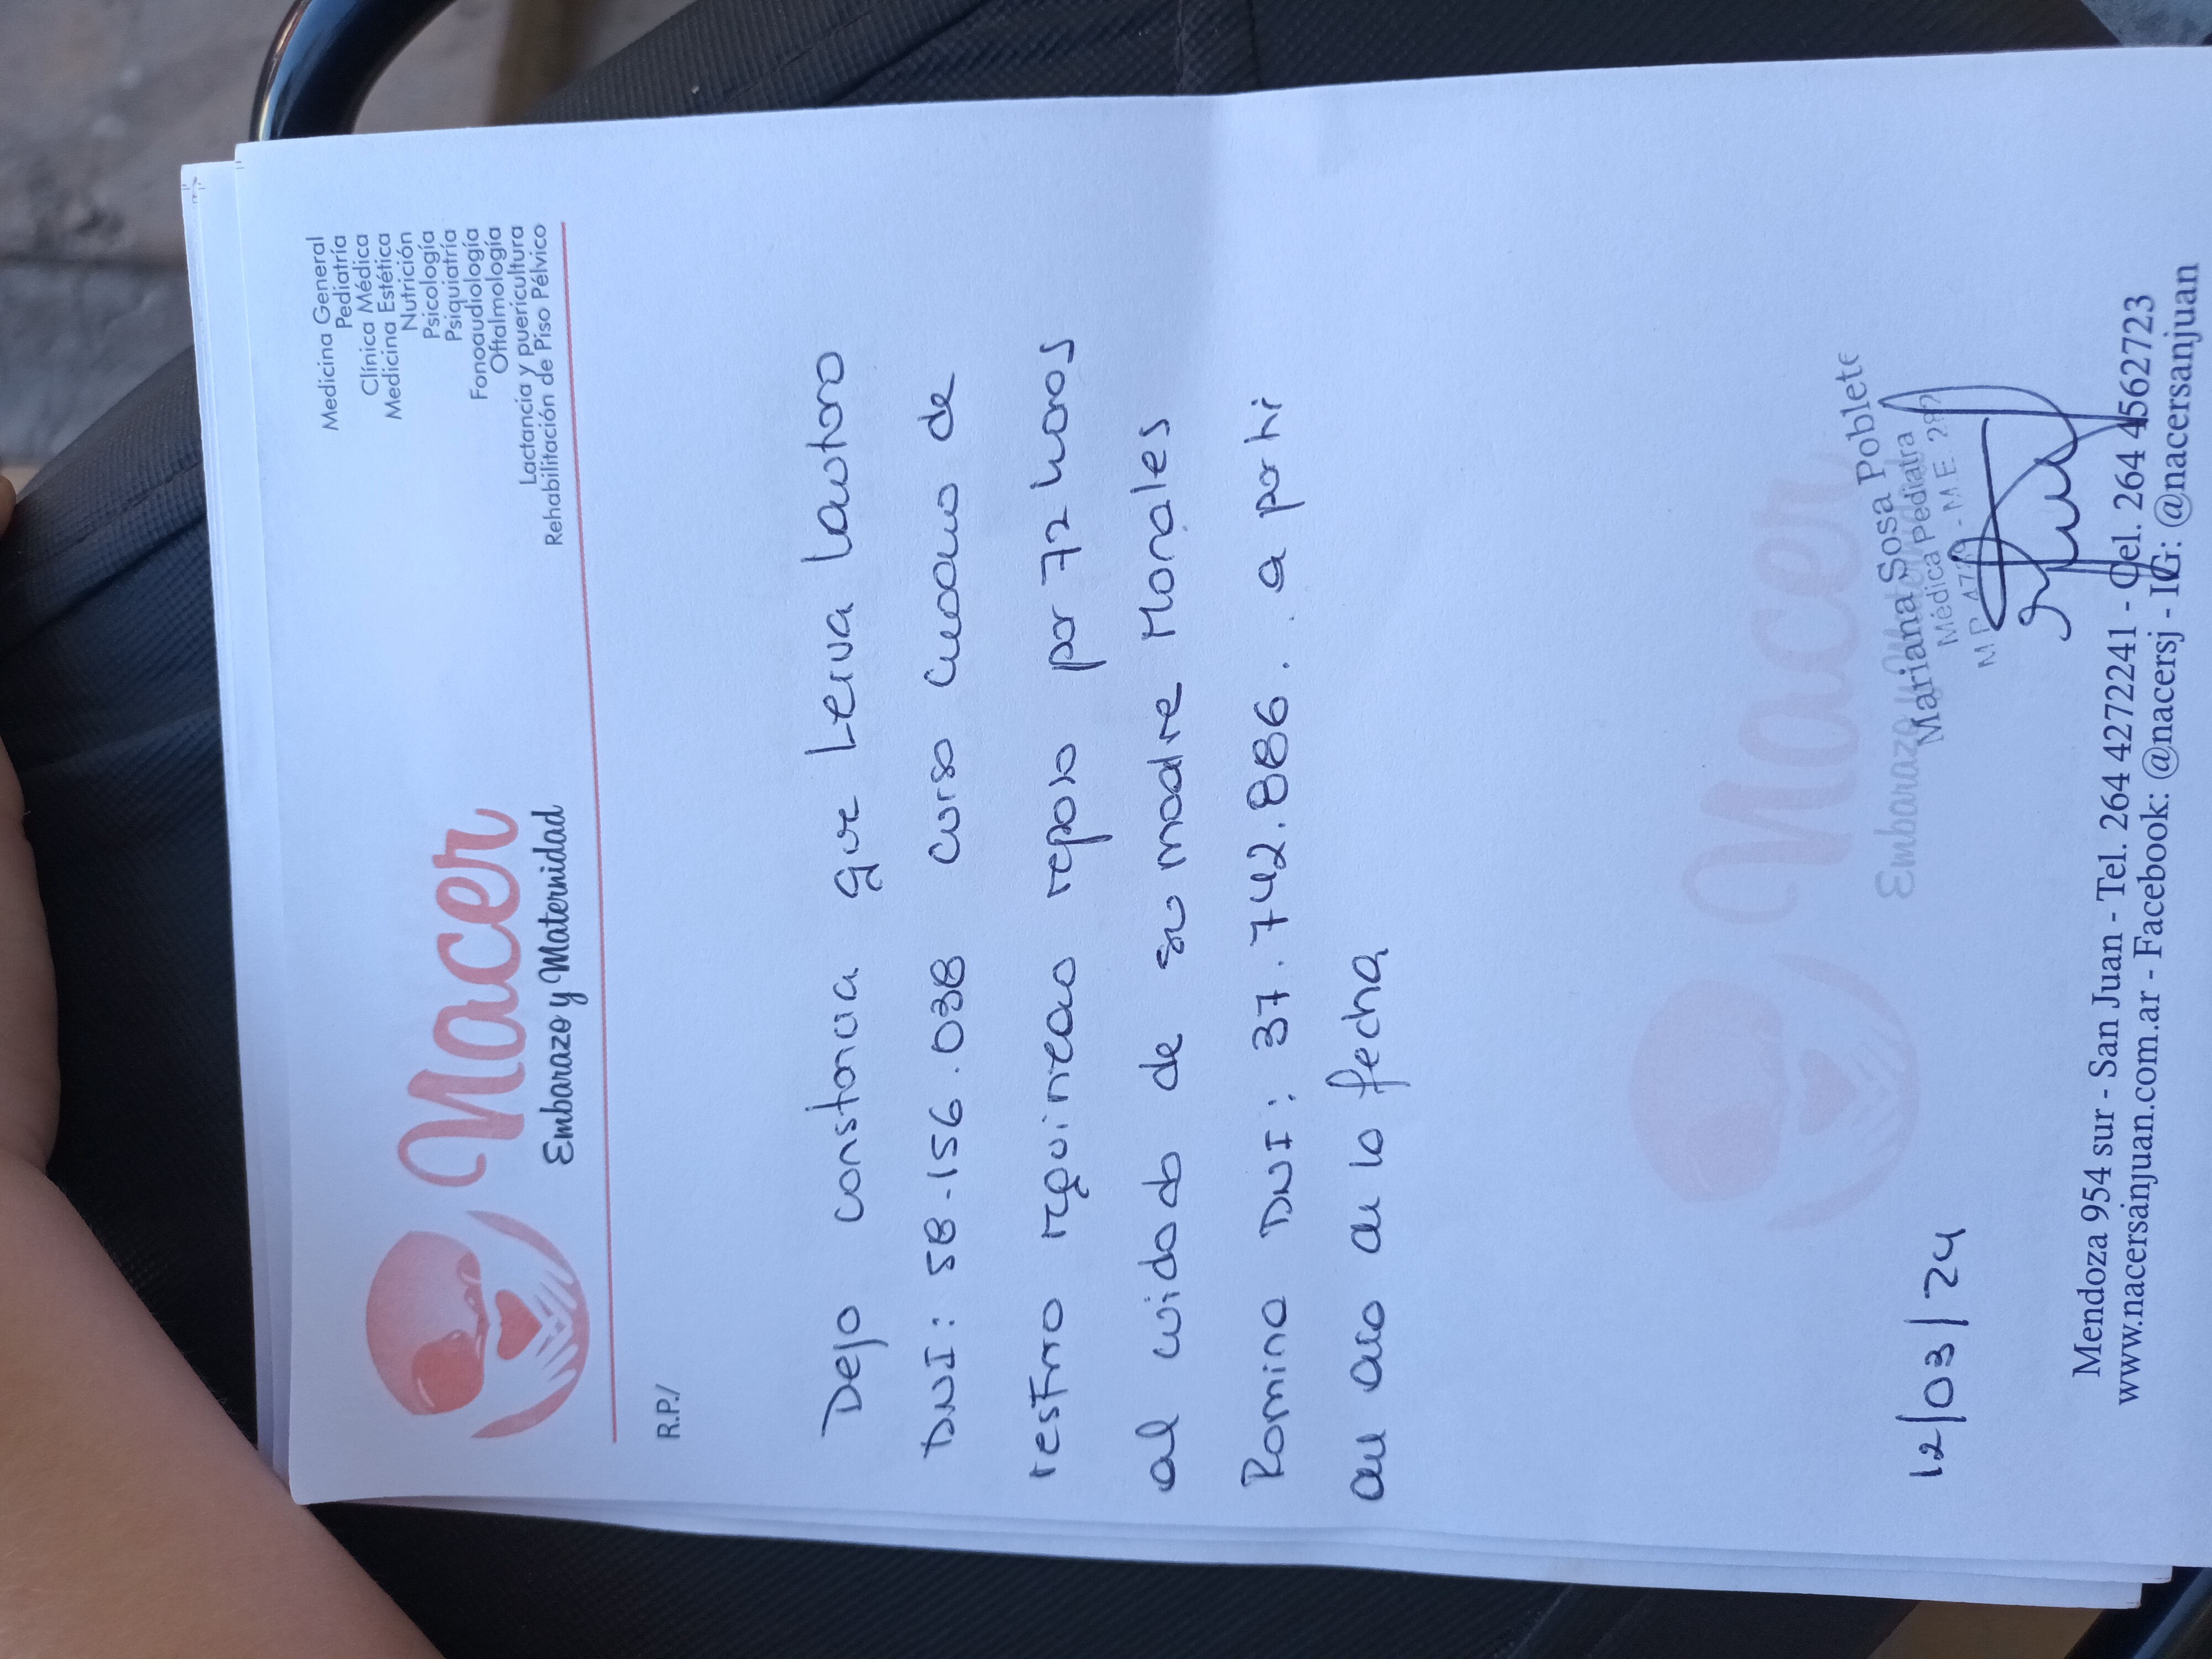 Nacer
Embarazo y Maternidad
Medicina General
Pediatría
Clínica Médica
Medicina Estética
Nutrición
Psicología
Psiquiatría
Fonoaudiología
Oftalmología
Lactancia y puericultura
Rehabilitación de Piso Pélvico
R.P./
Dejo constancia que Leiva Lautaro
DNI: 58.156.038 curso cuadro de
resfrio requiriendo reposo por 72 horas
al cuidado de su madre Morales
Romina DNI: 37.742.886. a partir
del día de la fecha
Nacer
Embarazo y Maternidad
Mariana Sosa Poblete
Médica Pediatra
12/03/24
Mendoza 954 sur - San Juan - Tel. 264 4272241 - Cel. 264 4562723
www.nacersanjuan.com.ar - Facebook: @nacersj - IG: @nacersanjuan